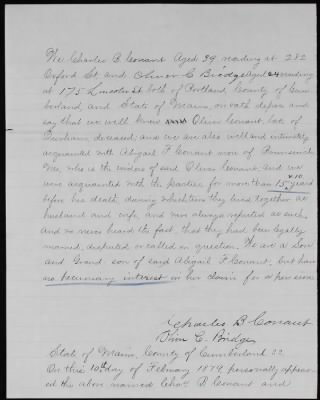 We Charles B Conant Aged 39 residing at 282
Oxford St and Oliver C Bridge Aged 24 residing
at 175 Lincoln St both of Portland, County of Cum-
berland, and State of Maine, on oath depose and
say that we well knew Oliver Conant, late of
Durham, deceased, and we are also well and intimately
acquainted with Abigail F Conant now of Pownal
Me, who is the widow of said Oliver Conant, and we
were acquainted with the parties for more than 15 & 10 years
before his death, during which time they lived together as
husband and wife, and were always reputed as such,
and we never heard the fact, that they had been legally
married, disputed or called in question. We are a Son
and Grand son of said Abigail F Conant, but have
no pecuniary interest in her claim for a pension
Charles B Conant
C. Bridge
State of Maine, County of Cumberland SS.
On this 10th day of February 1879 personally appear-
ed the above named Chas B Conant and